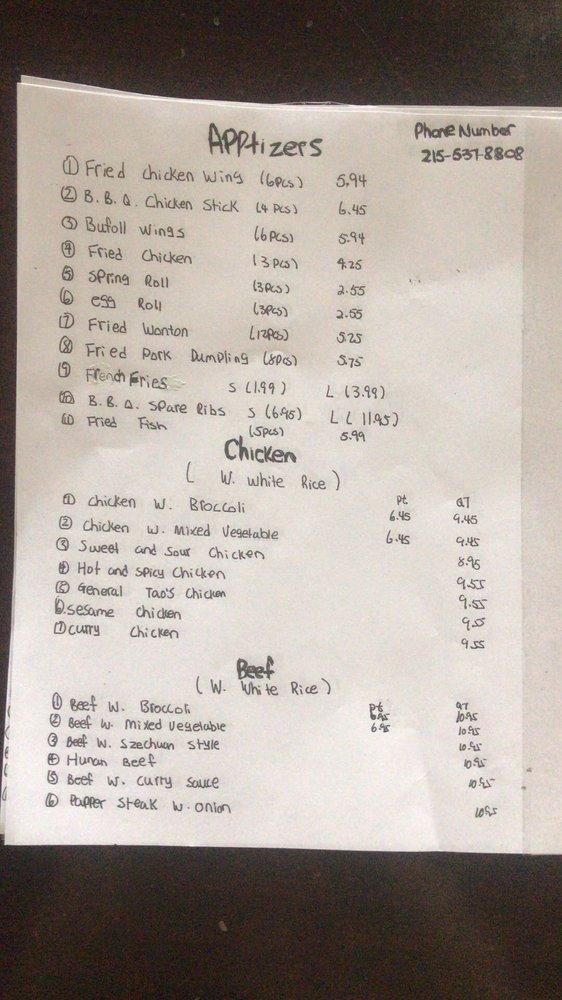 APPtizers
Phone Number
215-537-8808
① Fried chicken wing (6pcs) 5.94
② B.B.Q. Chicken Stick (4 pcs) 6.45
③ Bufoll wings (6pcs) 5.94
④ Fried Chicken (3pcs) 4.25
⑤ Spring Roll (3pcs) 2.55
⑥ egg Roll (3pcs) 2.55
⑦ Fried Wonton (12pcs) 5.25
⑧ Fried Pork Dumpling (8pcs) 5.75
⑨ French Fries S (1.99) L (3.99)
⑩ B.B.Q. Spare Ribs S (6.95) L ( 11.95)
⑪ Fried Fish (5pcs) 5.99
Chicken
( W. White Rice )
Pt QT
① Chicken W. Broccoli 6.45 9.45
② Chicken W. Mixed Vegetable 6.45 9.45
③ Sweet and Sour Chicken 8.95
④ Hot and Spicy Chicken 9.55
⑤ General Tao's Chicken 9.55
⑥. sesame Chicken 9.55
⑦ curry Chicken 9.55
Beef
( W. White Rice )
Pt QT
① Beef W. Broccoli 6.95 10.95
② Beef W. Mixed Vegetable 6.95 10.95
③ Beef W. Szechuan Style 10.95
④ Hunan Beef 10.95
⑤ Beef W. Curry Sauce 10.95
⑥ Papper Steak W. onion 10.95